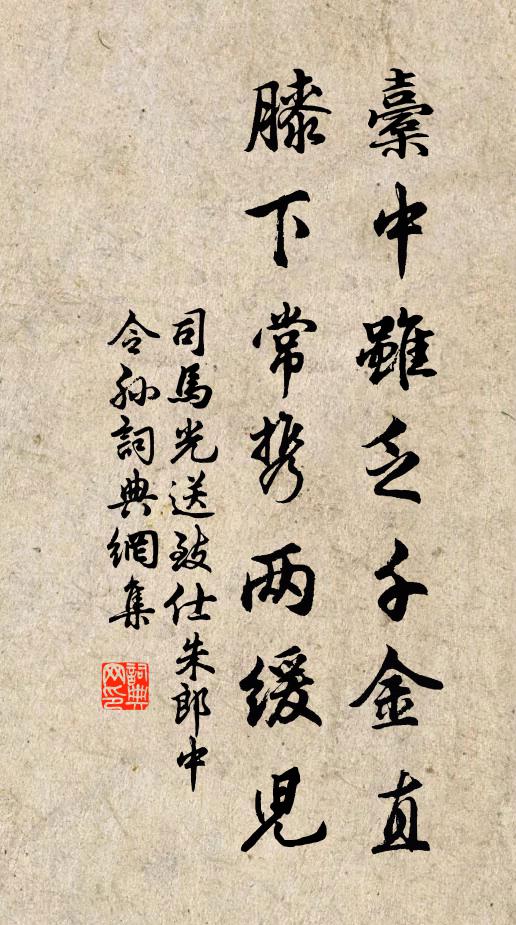 橐中雖乏千金直
膝下常携两綬兒
司馬光送致仕朱郎中
令孫詞典網集
詞典网印